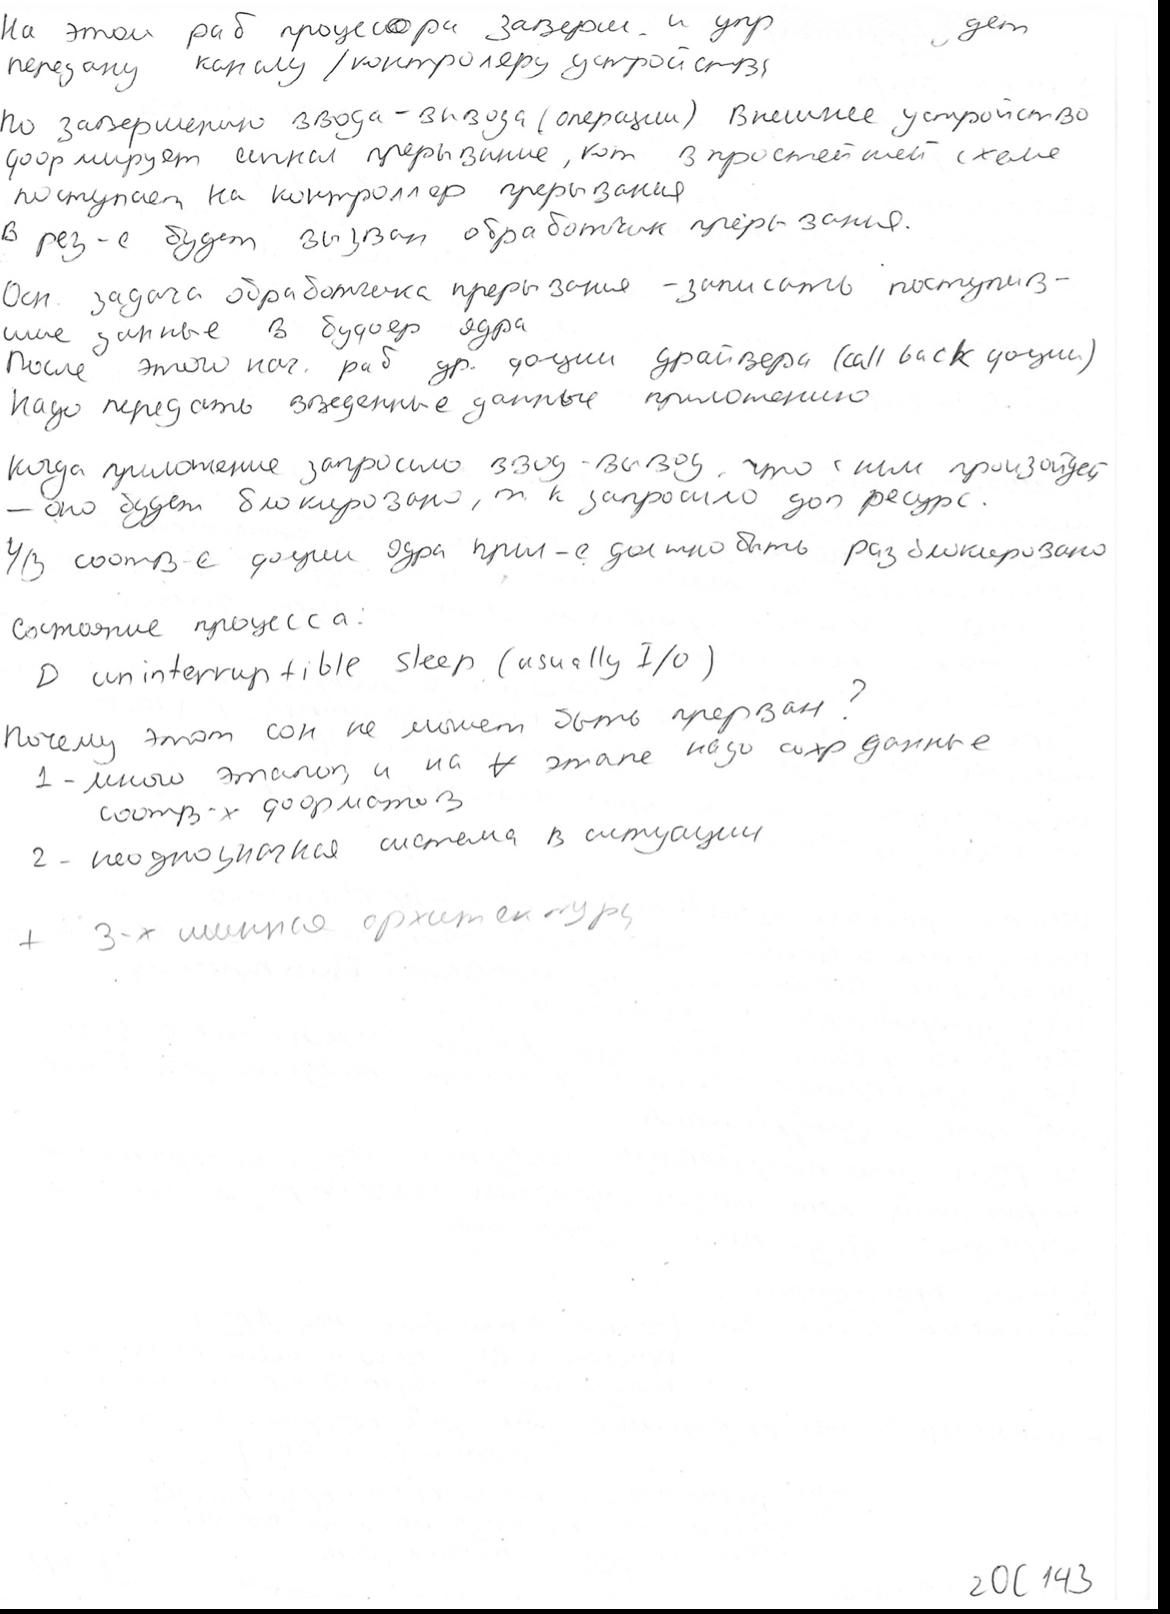 На этом раб процессора заверш. и упр дет
передану каналу/контролеру устройств
по завершению ввода-вывода (операции) внешнее устройство
формирует сигнал прерывание, кот в простейшей схеме
поступает на контроллер прерывания
В рез-е будет вызван обработчик прерывания.
Осн. задача обработчика прерывания - записать поступив-
шие данные в буфер ядра
После этого нач. раб др. фции драйвера (call back фции)
Надо передать введенные данные приложению
Когда приложение запросило ввод-вывод, что с ним произойдет
- оно будет блокировано, т к запросило доп ресурс.
Ч/з соотв-е фции ядра прил-е должно быть разблокировано
Состояние процесса:
D uninterruptible sleep (usually I/O)
Почему этот сон не может быть прерван?
1 - много этапов и на ∀ этапе надо сохр данные
соотв-х форматов
2 - неоднозначная система в ситуации
+ 3-х шинная архитектура
2ОС 143